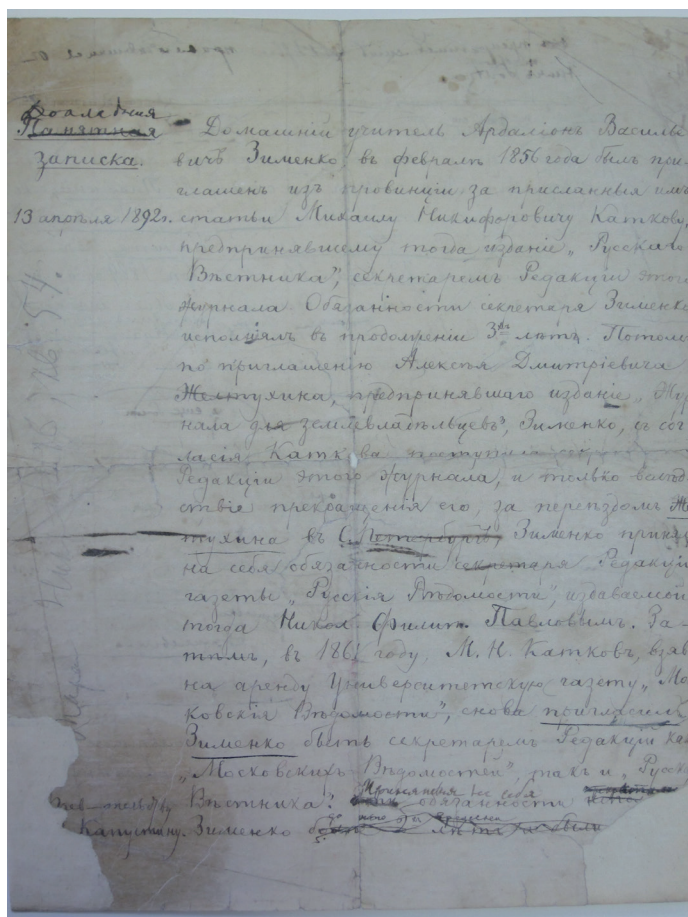 Докладная
Памятная
записка.
13 апрѣля 1892г.
Домашній учитель Ардаліонъ Василье
вичъ Зименко въ февралѣ 1856 года былъ при
глашенъ изъ провинціи за присланныя имъ
статьи Михаилу Никифоровичу Каткову,
предпринявшему тогда изданіе „Русскаго
Вѣстника", секретаремъ Редакціи этого
журнала Обязанности секретаря Зименко
исполнялъ въ продолженіи 3хъ лѣтъ. Потомъ
по приглашенію Алексѣя Дмитріевича
Желтухина, предпринявшаго изданіе „Жур
нала для землевладѣльцевъ", Зименко, съ сог
ласія Катк ва поступилъ
Редакціи этого журнала, и только вслѣд
ствіе прекращенія его, за переѣздомъ Же
тухина въ С. Петербургъ, Зименко принял
на себя обязанности секретаря Редакціи
газеты „Русскія Вѣдомости", издаваемой
тогда Никол. Филип. Павловымъ. За-
тѣмъ, въ 1861 году, М. Н. Катковъ, взяв
на аренду Университетскую газету „Мо
ковскія Вѣдомости", снова пригласилъ
Зименко быть секретаремъ Редакціи ка
„Московскихъ Вѣдомостей", такъ и „Русск
Принимая на себя
Вѣстника". обязанности
Капустину. Зименко лѣтъ